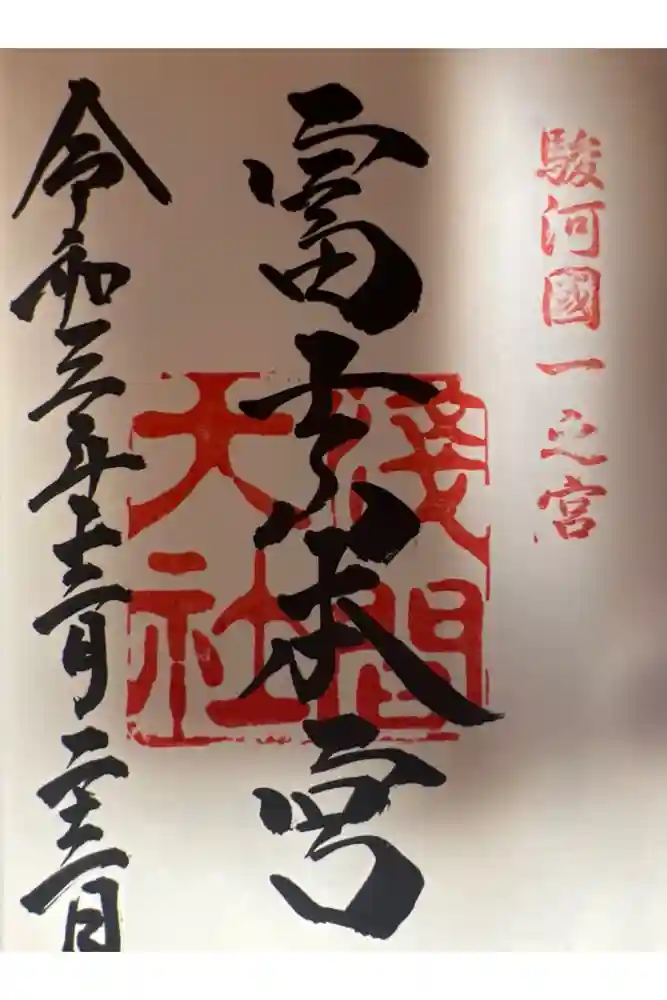 駿河國一之宮
富士本宮
淺間
大社
令和三年十二月二十二日